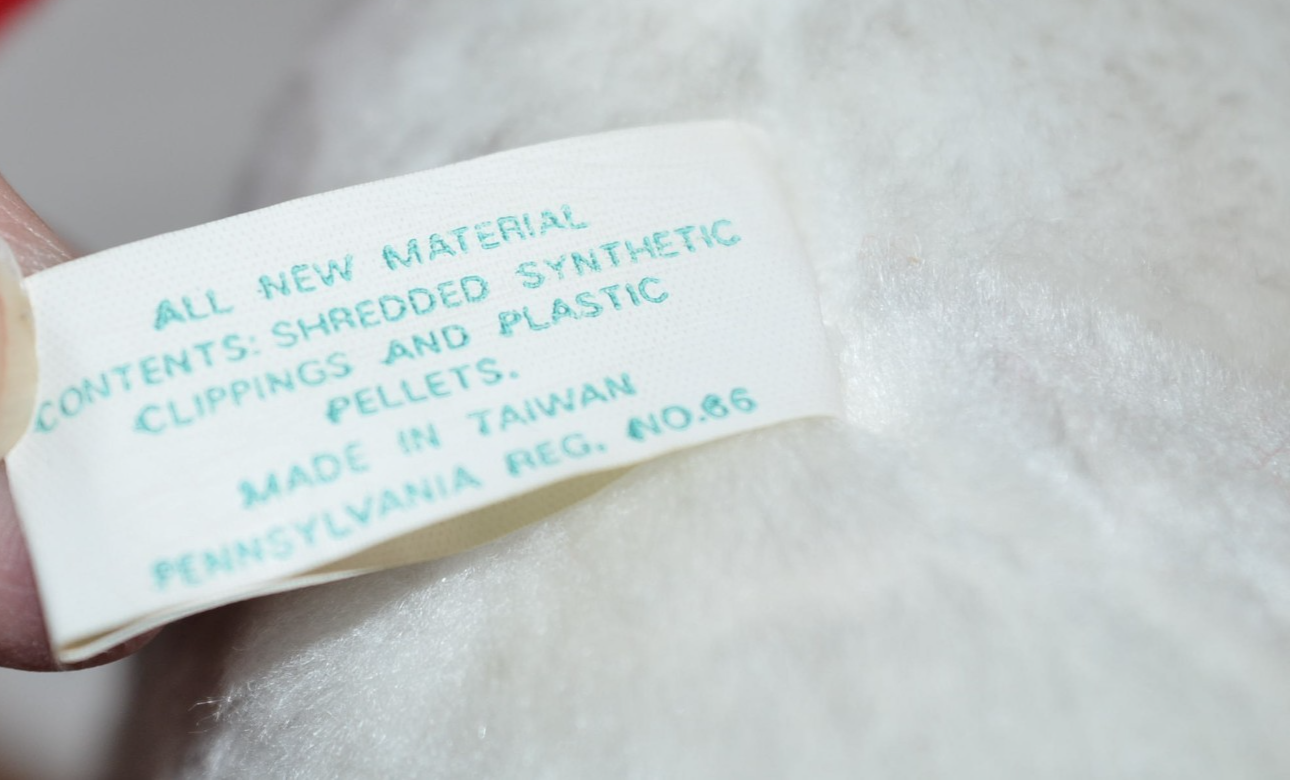 ALL NEW MATERIAL
CONTENTS: SHREDDED SYNTHETIC
CLIPPINGS AND PLASTIC
PELLETS.
MADE IN TAIWAN
PENNSYLVANIA REG. NO.66